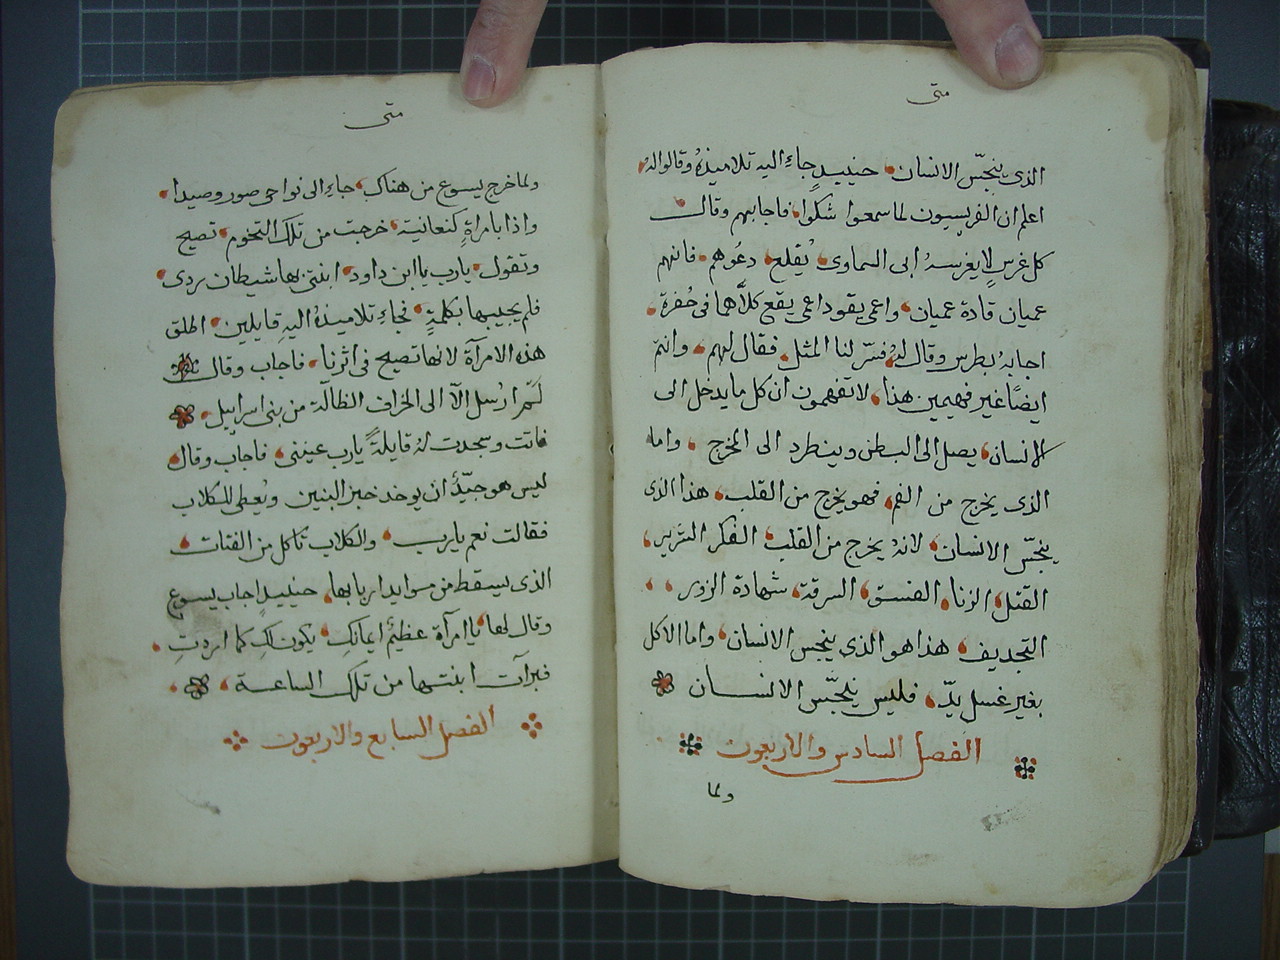 متى
الذى ينجّس الانسان حينيدٍ جاء اليه تلاميذهُ وقالوا لهُ
اعلم ان الفريسيون لما سمعوا شكوا فاجابهم وقال
كل غرسٍ لا يغرسهُ ابى السماوى يُقلع دعُوهم فانهم
عميان قادة عميان واعمى يقود اعمى يقع كلاّهما فى حُفرة
اجابهُ بطرس وقال لهُ فسّر لنا المثل فقال لهم وانتم
ايضًا غير فهيمين هنا لا تفهمون ان كل ما يدخل الى
الانسان يصل الى البطن وينطرد الى المخرج واما
الذى يخرج من الفم فهو يخرج من القلب هذا الذى
ينجّس الانسان لانهُ يخرج من القلب الفكر الشرير
القتل الزنا الفسق السرقة شهادة الزور
التجديف هذا هو الذى ينجس الانسان واما الاكل
بغير غسل يدّ فليس ينجّس الانسان
الفصل السادس والاربعون
ولما
متى
ولما خرج يسوع من هناك جاء الى نواحى صور وصيدا
واذا بامراةٍ كنعانية خرجت من تلك التخوم تصيح
وتقول يارب يا ابن داود ابنتى بها شيطان ردى
فلم يجيبها بكلمةٍ فجاء تلاميذهُ اليهِ قايلين اطلق
هذه الامرآة لانها تصيح فى اثرنا فاجاب وقال
لَم ارُسل الاّ الى الخراف الظالّة من بنى اسراييل
فاتت وسجدت لهُ قايلةً يارب عينّى فاجاب وقال
ليس هو جيّدًا ان يوخد خبز البنين ويُعطى للكلاب
فقالت نعم يارب والكلاب تاكل من الفتات
الذى يسقط من موايد اربابها حينيدٍ اجاب يسوع
وقال لها يا امرآة عظيمٌ ايمانكِ يكون لكِ كما اردتِ
فبرآت ابنتها من تلك الساعة
الفصل السابع والاربعون